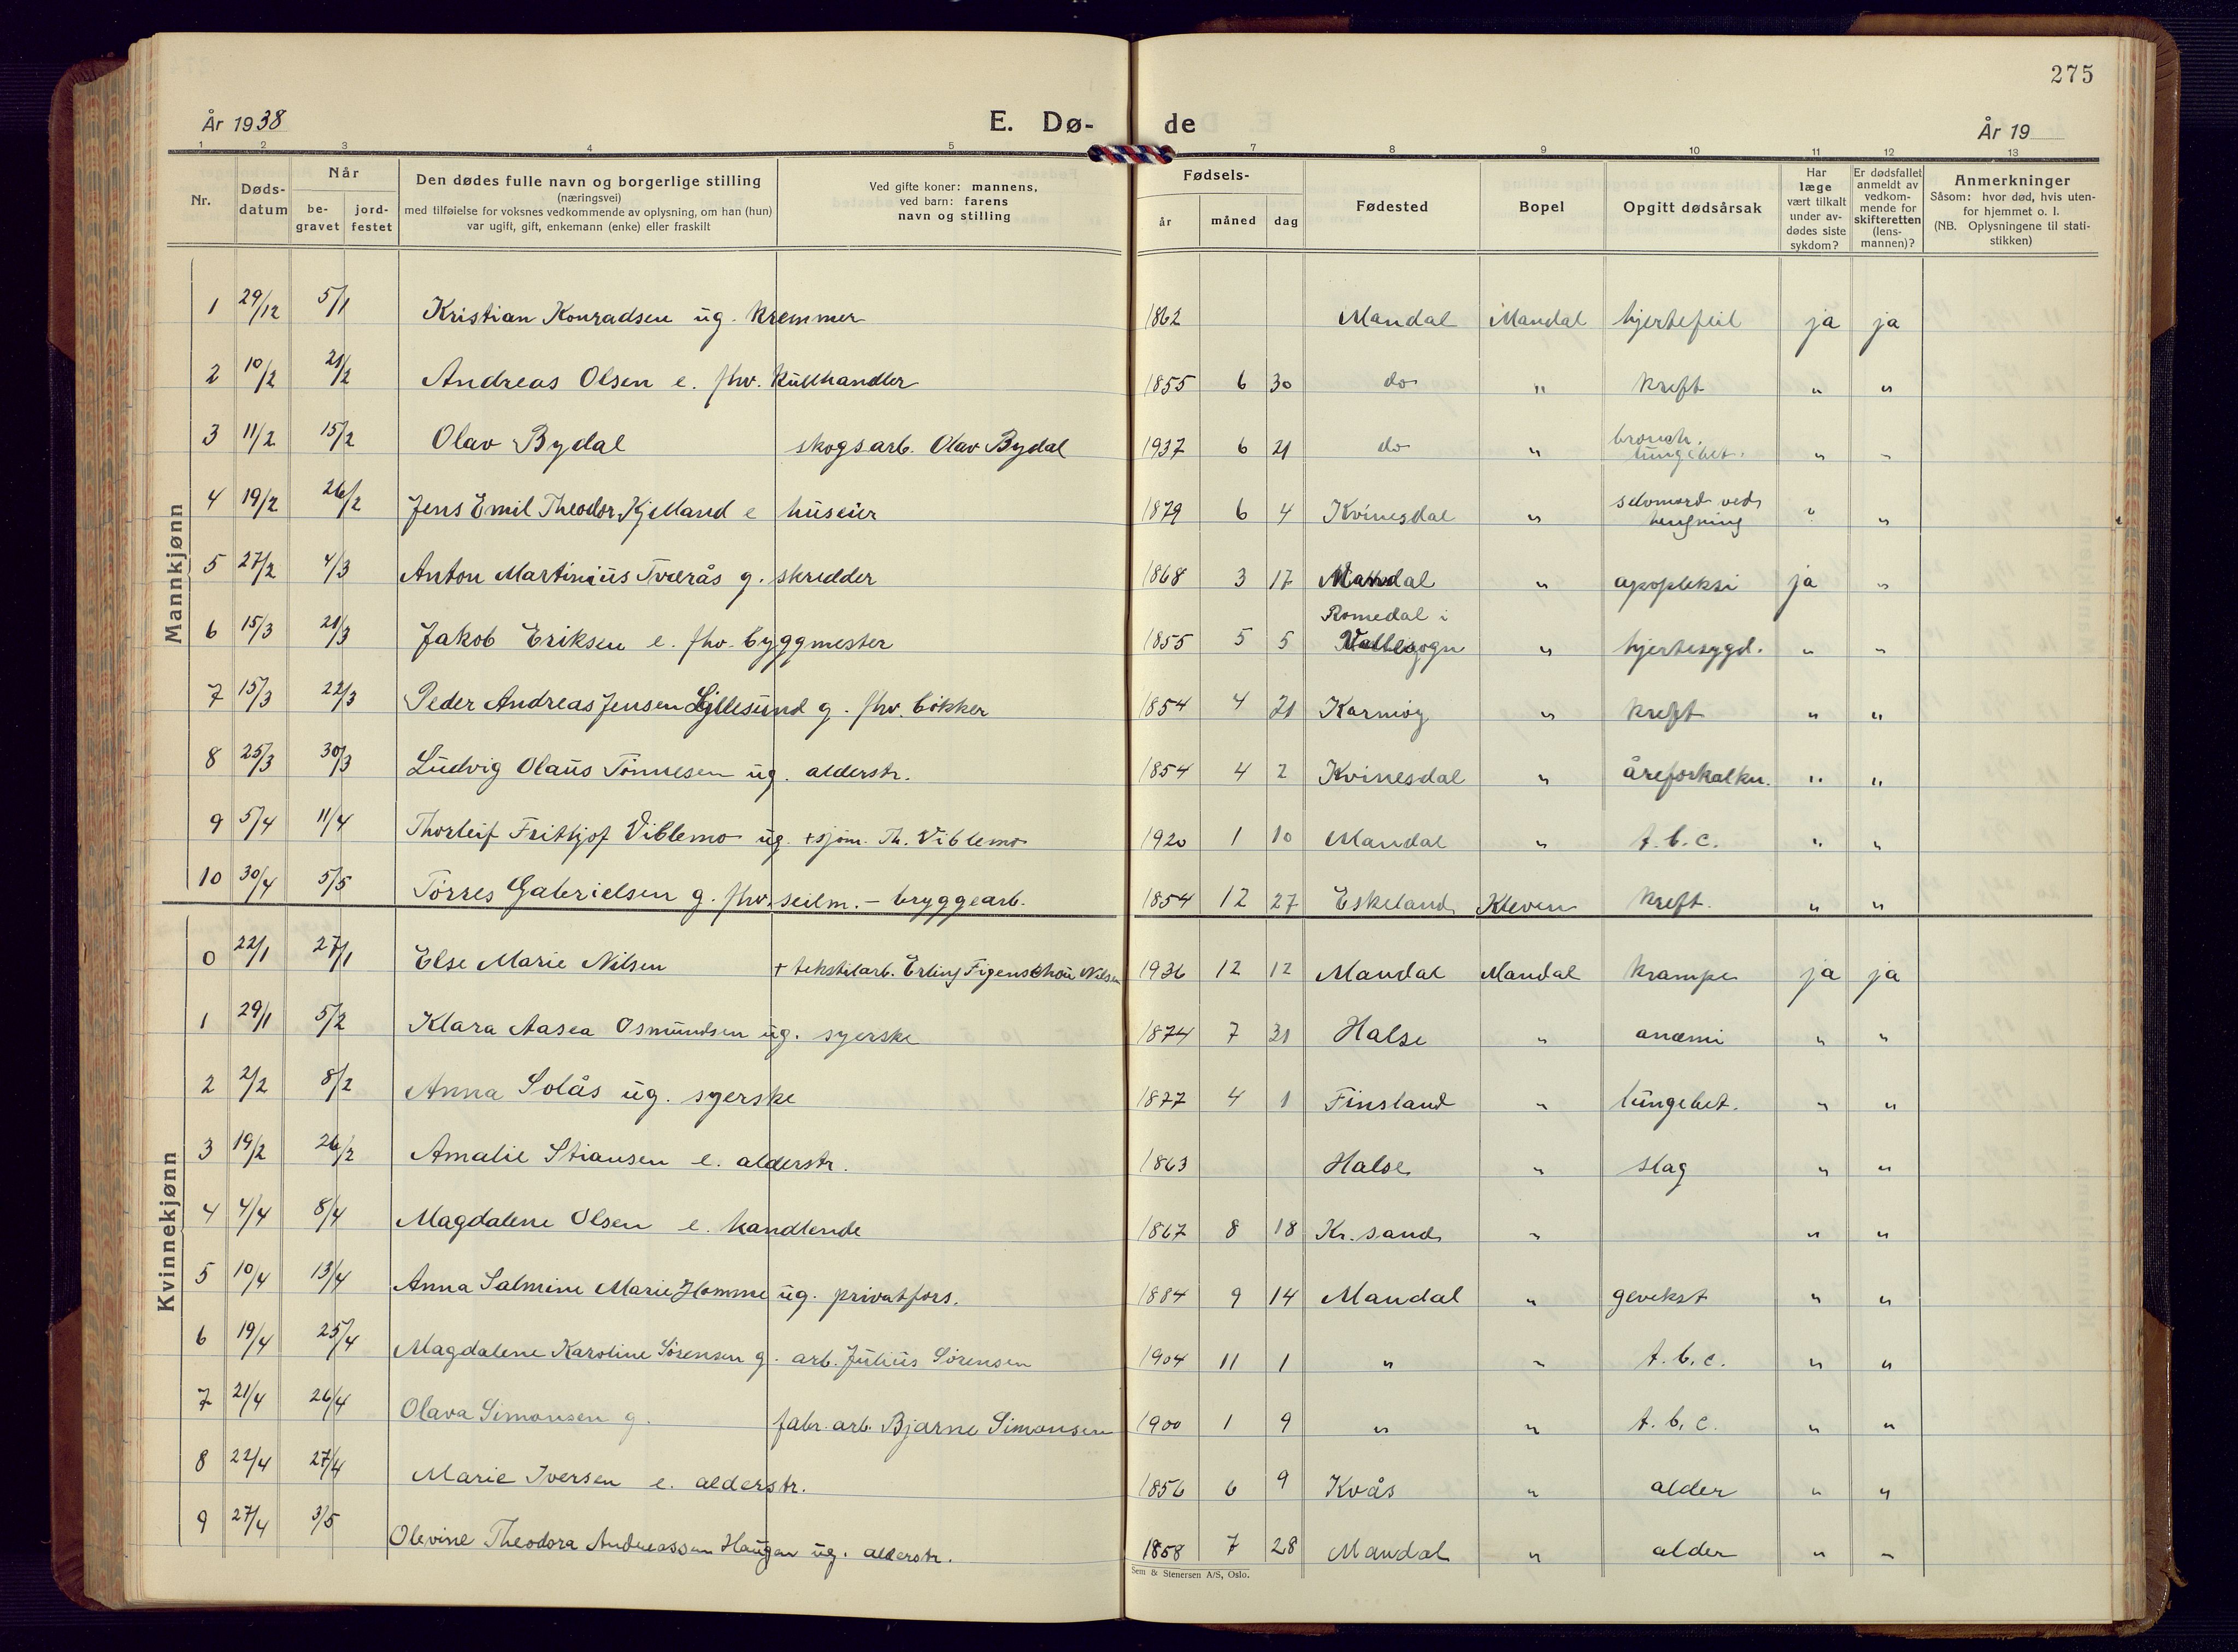 275
År 1938 E. Dø- de År 19
1 2 3 4 5 7 8 9 10 11 12 13
Nr.
Døds-
datum
Når
be-
gravet
jord-
festet
Den dødes fulle navn og borgerlige stilling
(næringsvei)
med tilføielse for voksnes vedkommende av oplysning, om han (hun)
var ugift, gift, enkemann (enke) eller fraskilt
Ved gifte koner: mannens,
ved barn: farens
navn og stilling
Fødsels-
år måned dag
Fødested
Bopel
Opgitt dødsårsak
Har
læge
vært tilkalt
under av-
dødes siste
sykdom?
Er dødsfallet
anmeldt av
vedkom-
mende for
skifteretten
(lens-
mannen)?
Anmerkninger
Såsom: hvor død, hvis uten-
for hjemmet o. l.
(NB. Oplysningene til stati-
stikken)
Mannkjønn
1 29/12 5/1 Kristian Konradsen ug. kremmer 1862 Mandal Mandal hjertefeil ja ja
2 10/2 21/2 Andreas Olsen e. fhv. kullhandler 1855 6 30 do " kreft " "
3 11/2 15/2 Olav Bydal skogsarb. Olav Bydal 1937 6 21 do " bronch. lungebet. " "
4 19/2 26/2 Jens Emil Theodor Kjelland e huseier 1879 6 4 Kvinesdal " selvmord ved hengning " "
5 27/2 4/3 Anton Martinius Tverås g. skredder 1868 3 17 Mandal " apopleksi ja "
6 15/3 21/3 Jakob Eriksen e. fhv. byggmester 1855 5 5 Romedal i Vallesogn " hjertesygd. " "
7 15/3 22/3 Peder Andreas Jensen Gjllesund g. fhv. bökker 1854 4 21 Karmöy " kreft " "
8 25/3 30/3 Ludvig Olaus Tönnesen ug. alderstr. 1854 4 2 Kvinesdal " åreforkalkn. " "
9 5/4 11/4 Thorleif Frithjof Viblemo ug. + sjöm. Th. Viblemo 1920 1 10 Mandal " t.b.c. " "
10 30/4 5/5 Törres Gabrielsen g. fhv. seilm. - bryggearb. 1854 12 27 Eskeland Kleven kreft. " "
Kvinnekjønn
0 22/1 27/1 Else Marie Nilsen + tekstilarb. Erling Figenschou Nilsen 1936 12 12 Mandal Mandal krampe ja ja
1 29/1 5/2 Klara Aasea Osmundsen ug. syerske 1874 7 31 Halse " anæmi " "
2 2/2 8/2 Anna Solås ug. syerske 1877 4 1 Finsland " lungebet. " "
3 19/2 26/2 Amalie Stiansen e. alderstr. 1863 Halse " slag " "
4 4/4 8/4 Magdalene Olsen e. handlende 1867 8 18 Kr.sand " " "
5 10/4 13/4 Anna Salmine Marie Homme ug. privatfors. 1884 9 14 Mandal " gevekst " "
6 19/4 25/4 Magdalene Karoline Sörensen g. arb. Julius Sörensen 1904 11 1 " " t.b.c. " "
7 21/4 26/4 Olava Simonsen g. fabr. arb. Bjarne Simonsen 1900 1 9 " " t.b.c. " "
8 22/4 27/4 Marie Iversen e. alderstr. 1856 6 9 Kvås " alder " "
9 27/4 3/5 Olevine Theodora Andreassen Haugan ug. alderstr. 1858 7 28 Mandal " alder " "
Sem & Stenersen A/S, Oslo.